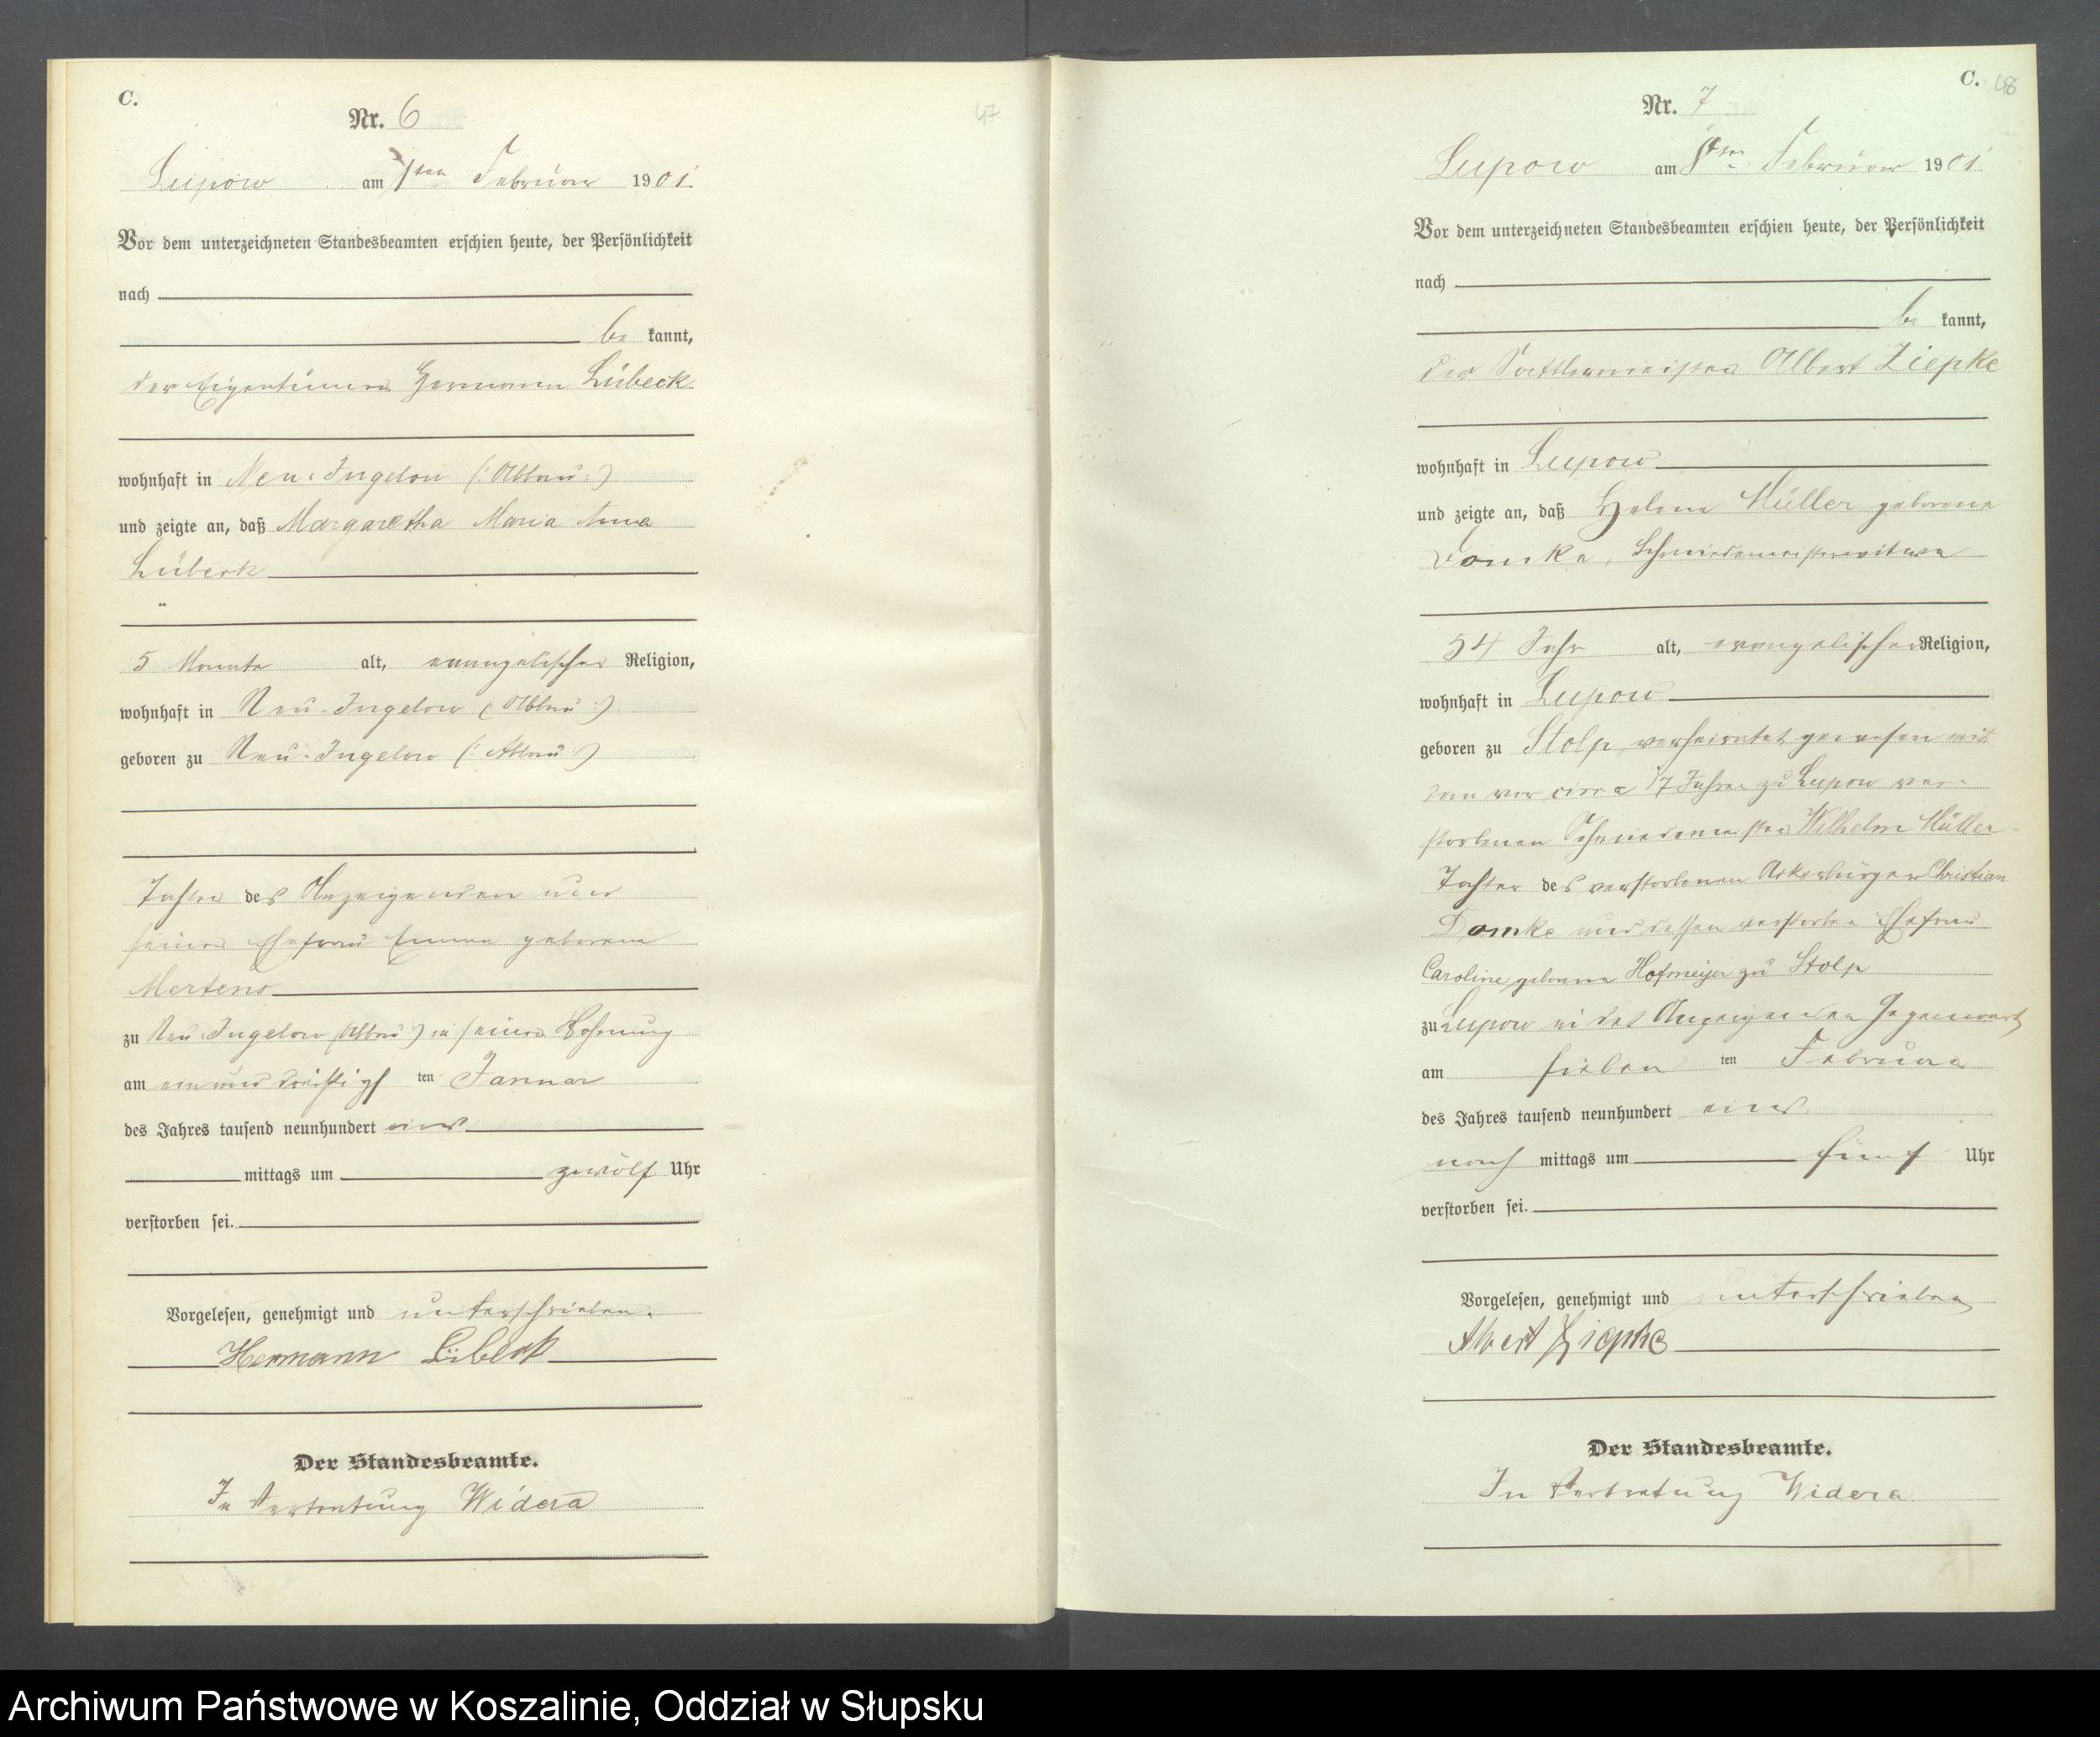 C.
Nr. 6
47
Lupow am 1ten Februar 1901.
Vor dem unterzeichneten Standesbeamten erschien heute, der Persönlichkeit
nach
be kannt,
der Eigentümer Hermann Lübeck
wohnhaft in Neu-Jugelow (: Abbau :)
und zeigte an, daß Margaretha Maria Anna
Lübeck
5 Monate alt, evangelischer Religion,
wohnhaft in Neu-Jugelow (: Abbau :)
geboren zu Neu-Jugelow (: Abbau :)
Tochter des Anzeigenden und
seiner Ehefrau Emma geborene
Mertens
zu Neu-Jugelow (Abbau) in seiner Wohnung
am ein und dreißigs ten Januar
des Jahres tausend neunhundert eins
mittags um zwölf Uhr
verstorben sei.
Vorgelesen, genehmigt und unterschrieben.
Hermann Lübeck
Der Standesbeamte.
In Vertretung Widera
C. 48
Nr. 7
Lupow am 8ten Februar 1901
Vor dem unterzeichneten Standesbeamten erschien heute, der Persönlichkeit
nach
be kannt,
der Sattlermeister Albert Ziepke
wohnhaft in Lupow
und zeigte an, daß Helene Müller geborene
Domke, Schmiedemeisterwitwe
54 Jahr alt, evangelischer Religion,
wohnhaft in Lupow
geboren zu Stolp, verheiratet gewesen mit
dem vor circa 17 Jahren zu Lupow ver-
storbenen Schmiedemeister Wilhelm Müller
Tochter des verstorbenen Ackerbürger Christian
Domke und dessen verstorben Ehefrau
Caroline geborene Hofmeijer zu Stolp
zu Lupow in des Anzeigenden Gegenwart
am sieben ten Februar
des Jahres tausend neunhundert eins
nach mittags um fünf Uhr
verstorben sei.
Vorgelesen, genehmigt und unterschrieben
Albert Ziepke
Der Standesbeamte.
In Vertretung Widera
Archiwum Państwowe w Koszalinie, Oddział w Słupsku